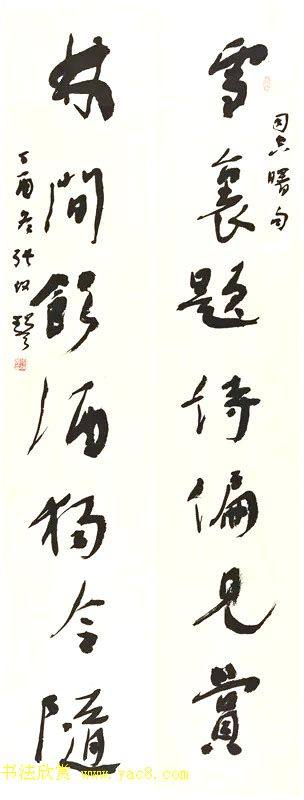 司空曙句
雪裏題詩偏見賞
林間飲酒獨令隨
丁酉冬张改琴
书法欣赏 www.yac8.com